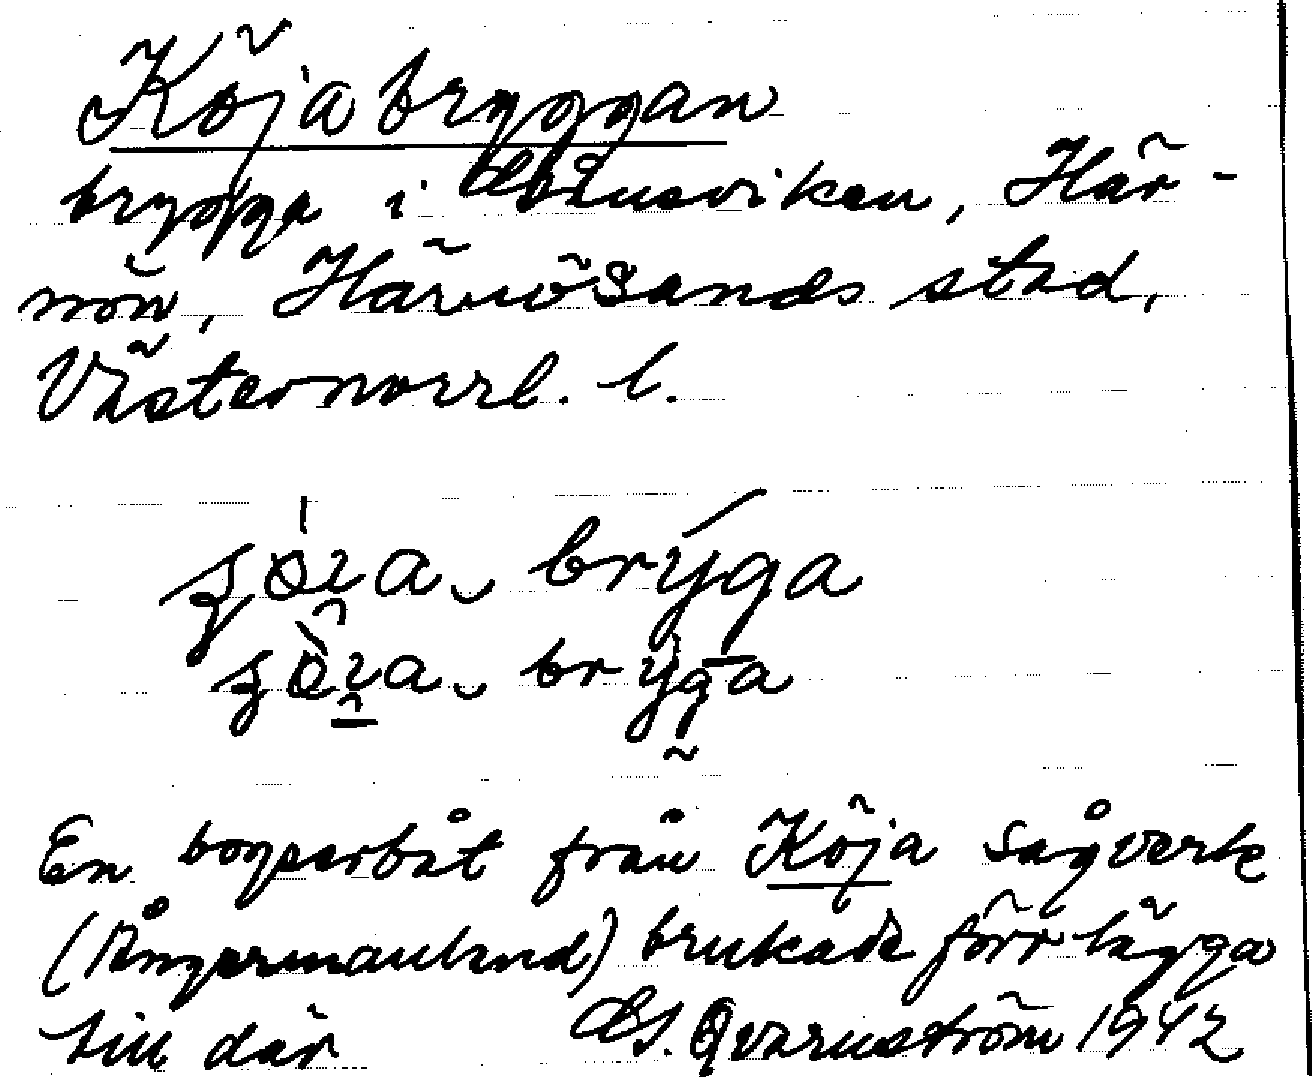 Köjabryggan
brygga i Älandsviken, Här-
nön, Härnösands stad,
Västernorrl. l.
brýga
En bogserbåt från Köja sågverk
(Ångermanland) brukade förr lägga
till där G. Qvarnström 1942